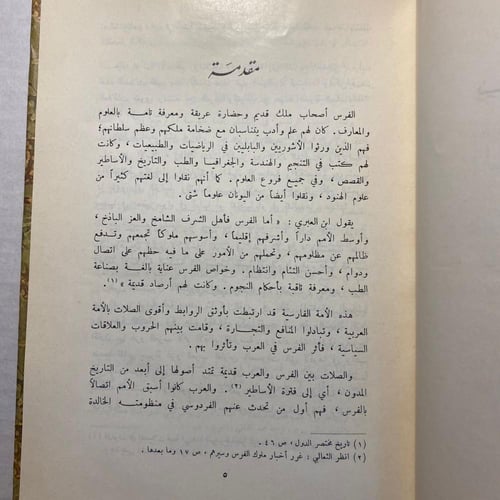 مقدمة
الفرس أصحاب ملك قديم وحضارة عريقة ومعرفة تامة بالعلوم
والمعارف. كان لهم علم وأدب يتناسبان مع ضخامة ملكهم وعظم سلطانهم؛
فهم الذين ورثوا الآشوريين والبابليين في الرياضيات والطبيعيات، وكانت
لهم كتب في التنجيم والهندسة والجغرافيا والطب والتاريخ والأساطير
والقصص، وفي جميع فروع العلوم. كما أنهم نقلوا إلى لغتهم كثيراً من
علوم الهنود، ونقلوا أيضاً من اليونان علوماً شتى.
يقول ابن العبري : « أما الفرس فأهل الشرف الشامخ والعز الباذخ،
وأوسط الأمم داراً وأشرفهم إقليماً، وأسوسهم ملوكاً تجمعهم وتدفع
ظالمهم عن مظلومهم، وتحملهم من الأمور على ما فيه حظهم على اتصال
ودوام، وأحسن التئام وانتظام. وخواص الفرس عناية بالغة بصناعة
الطب، ومعرفة ثاقبة بأحكام النجوم. وكانت لهم أرصاد قديمة » (١).
هذه الأمة الفارسية قد ارتبطت بأوثق الروابط وأقوى الصلات بالأمة
العربية، وتبادلوا المنافع والتجارة، وقامت بينهم الحروب والعلاقات
السياسية، فأثر الفرس في العرب وتأثروا بهم.
والصلات بين الفرس والعرب قديمة تمتد أصولها إلى أبعد من التاريخ
المدون، أي إلى فترة الأساطير (٢). والعرب كانوا أسبق الأمم اتصالاً
بالفرس، فهم أول من تحدث عنهم الفردوسي في منظومته الخالدة
(١) تاريخ مختصر الدول، ص ٤٦.
(٢) انظر الثعالبي : غرر أخبار ملوك الفرس وسيرهم، ص ١٧ وما بعدها.
٥